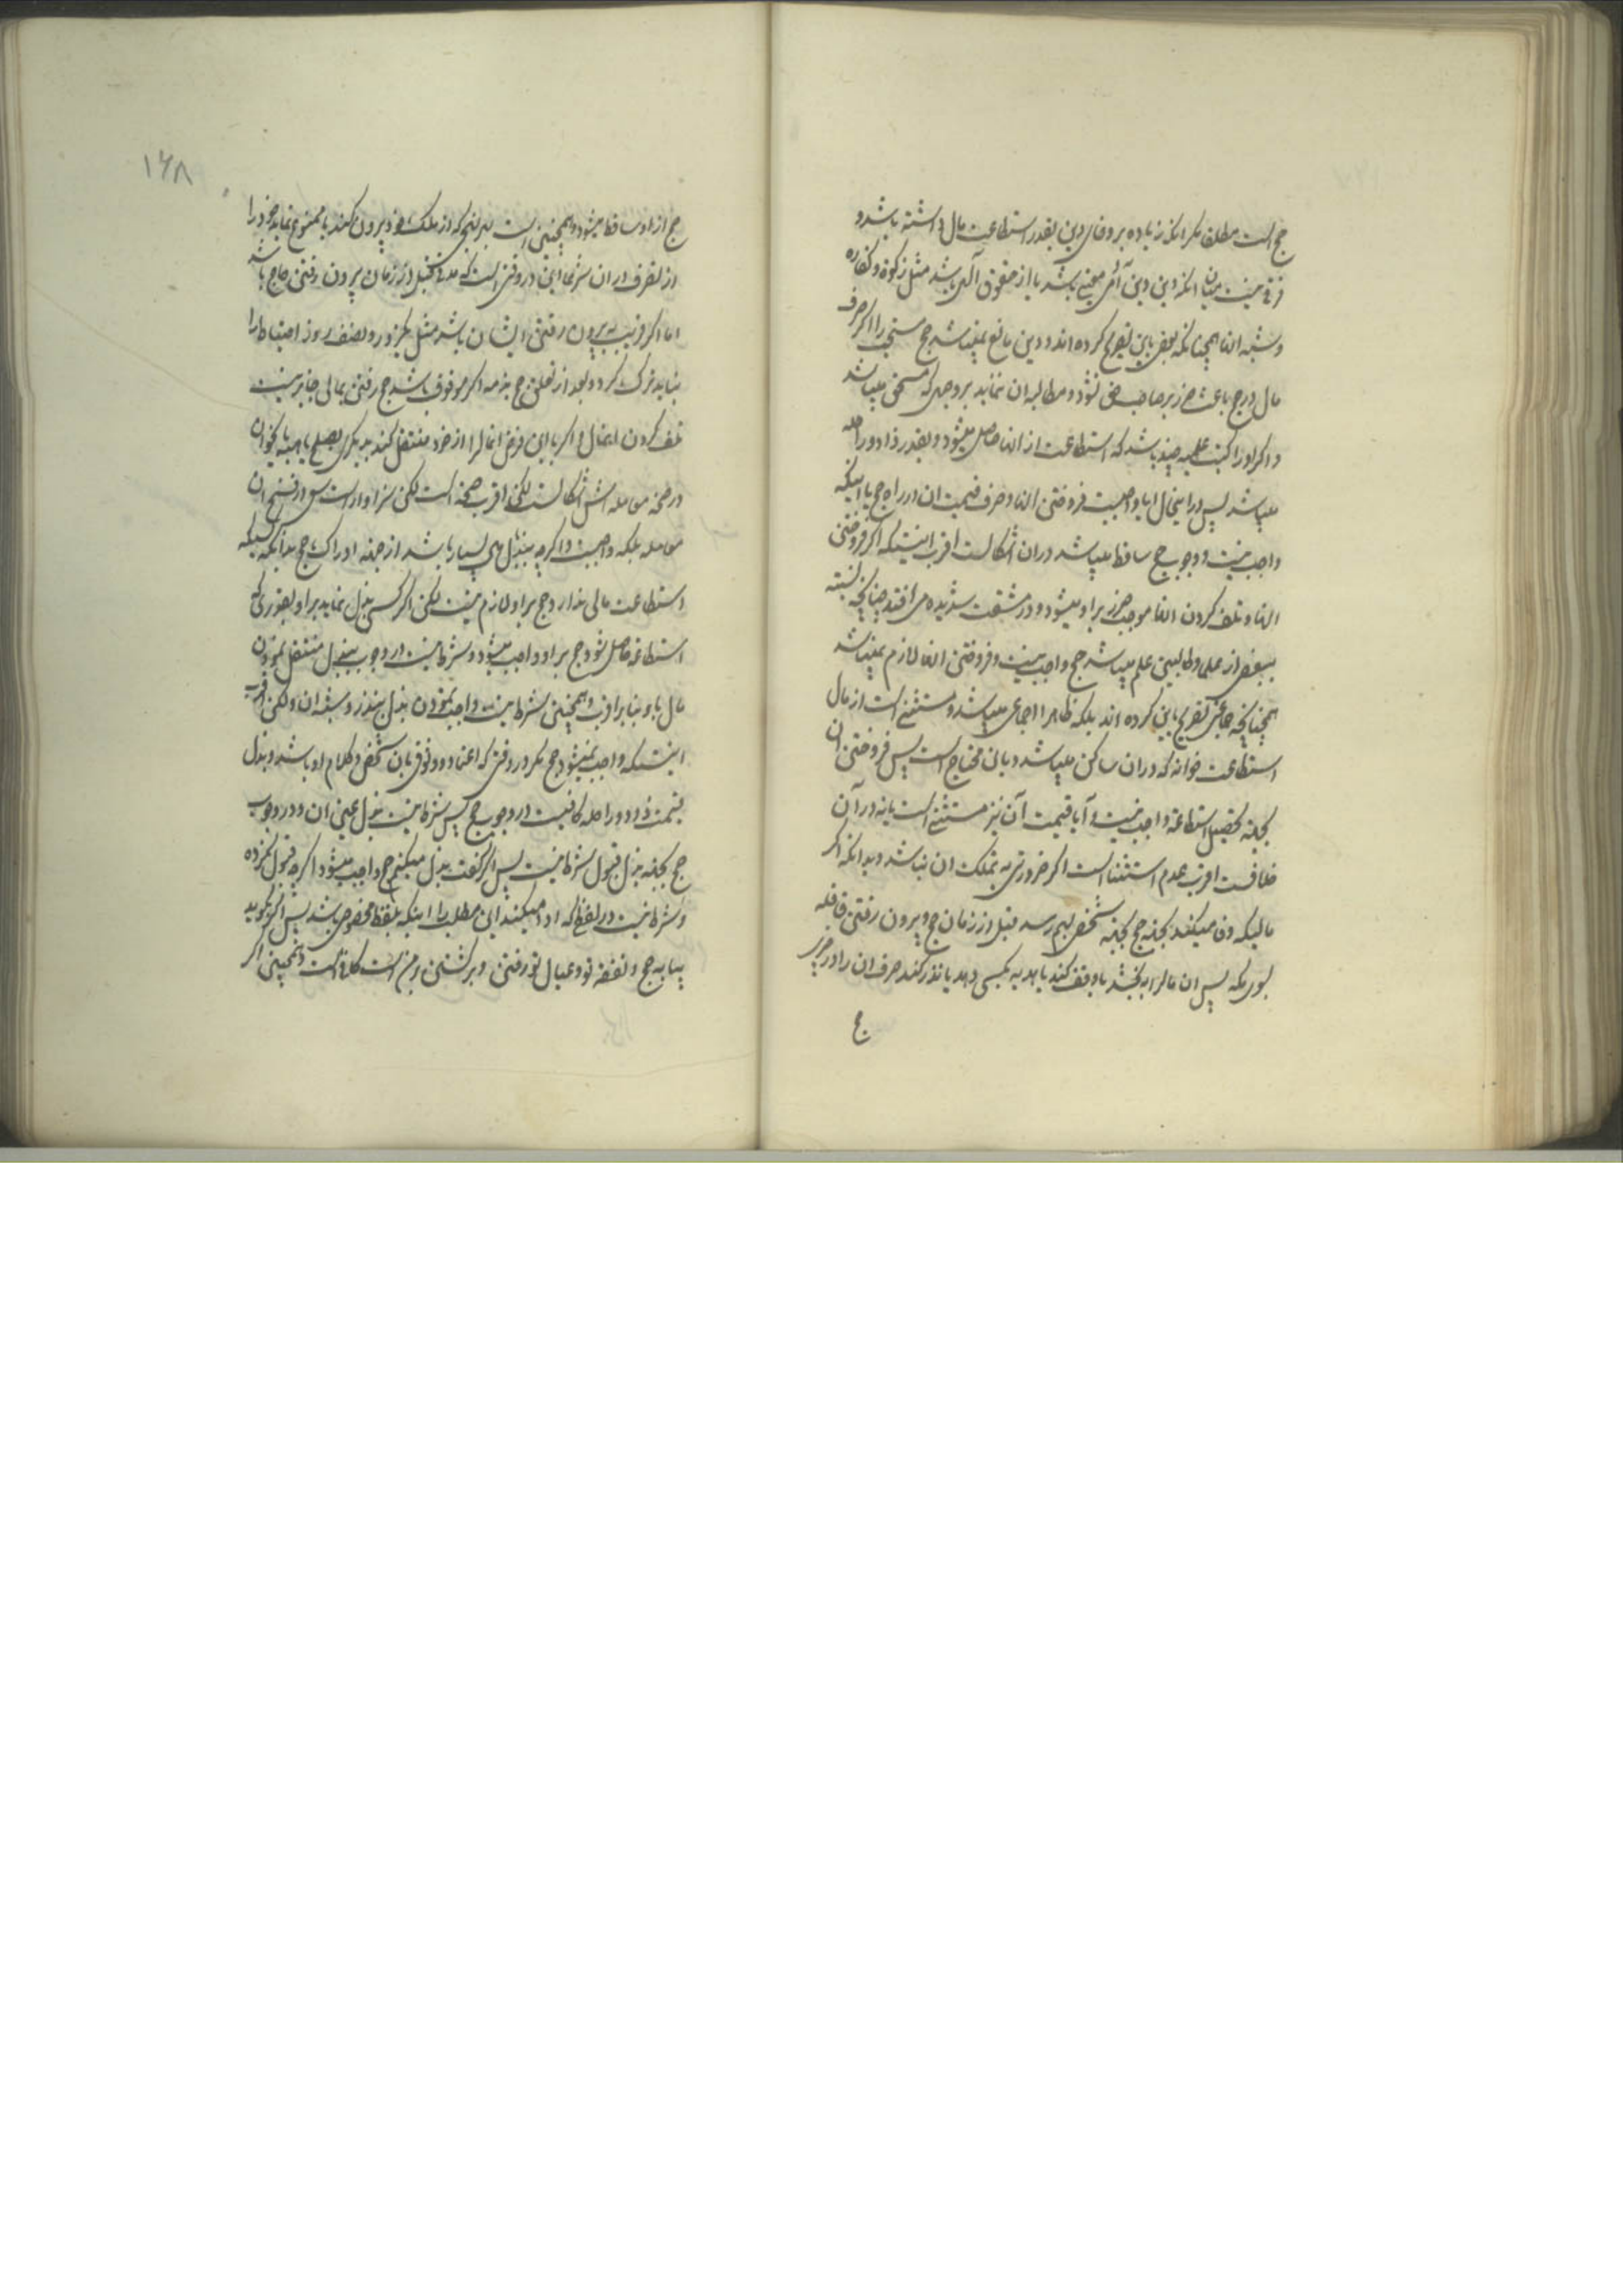 حج است مطلقا مگر انکه زیاده بر وفای دین بقدر استطاعت مال داشته باشد و
فرقی نیست میان انکه دین دین آدمی معینی باشد یا از حقوق آلهی باشد مثل زکوة و کفاره
و شبه انها همچنانکه بعضی باین تصریح کرده اند و دین مانع نمیباشد حج مستحب را اگر صرف
مال در حج باعث ضرر بر صاحب حق نشود و مطالبه ان ننماید بر وجهی که مستحق میباشد
و اگر او را کتب علمیه چند باشد که استطاعت از انها حاصل میشود و بقدر زاد و راحله
میباشد پس در اینحال ایا واجبست فروختن انها و صرف قیمت ان در راه حج یا اینکه
واجب نیست و وجوب حج ساقط میباشد در ان اشکالست اقرب اینستکه اگر فروختن
انها و تلف کردن انها موجب ضرر بر او میشود و در مشقت شدیده می افتد چنانچه نسبته
ببعضی از علما و طالبین علم میباشد حج واجب نیست و فروختن انها لازم نمیباشد
همچنانچه جماعتی تصریح باین کرده اند بلکه ظاهرا اجماعی میباشد و مستثنی است از مال
استطاعت خوانه که در ان ساکن میباشد و بانی محتاج است پس فروختن ان
بجهته تحصیل استطاعة واجب نیست و آیا قیمت آن نیز مستثنی است یا نه در آن
خلافست اقرب عدم استثنا است اگر ضرورتی به تملک ان نباشد و بدانکه اگر
مالیکه وفا میکند بجهته حج بجهته شخصی بهم رسد قبل از زمان حج و بیرون رفتن قافله
بسوی مکه پس ان مال را ببخشد یا وقف کند یا هدیه بکسی دهد یا نذر کند صرف ان را در چیزی
ج
۱۶۸
حج از او ساقط میشود و همچنین است بهر نحوی که از ملک خود بیرون کند یا ممنوع نماید خود را
از تصرف در ان شرعا این در وقتی است که مدتی قبل از زمان بیرون رفتن حاج باشد
اما اگر قریب به بیرون رفتن ایشان باشد مثل یکروز و نصف روز احتیاط را
نباید ترک کرد و بعد از تعلق حج بذمه اگر موقوف باشد حج رفتن بمالی جایز نیست
تلف کردن انمال و اگر با این فرض انمال را از خود منتقل کند بدیگری بصلح یا هبه یا نحو ان
در صحة معامله اش اشکالست لکن اقرب صحة است لکن سزاوار است سعی در فسخ ان
معامله بلکه واجبست و اگر چه ببذل مهی بسیار باشد از جهته ادراک حج بدانکه کسیکه
استطاعت مالی ندارد حج بر او لازم نیست لکن اگر کسی بذل نماید بر او بقدری که
استطاعة حاصل شود حج بر او واجب میشود و شرط نیست در وجوب ببذل منتقل نمودن
مال باو بنا بر اقرب و همچنین شرط نیست واجب نمودن بذل بنذر و شبه ان و لکن اقرب
اینستکه واجب نمیشود حج مگر در وقتی که اعتماد و وثوق بان شخص و کلام او باشد و بذل
قیمت زاد و راحله کافیست در وجوب حج پس شرط نیست بذل عین ان و در وجوب
حج بجهته بذل قبول شرط نیست پس اگر گفت بذل میکنم حج واجب میشود اگر چه قبول نکرده
و شرط نیست در لفظی که ادا میکند این مطلب را اینکه بلفظ مخصوص باشد پس اگر بگوید
بیا به حج و نفقه تو و عیال تو رفتن و برگشتن بر من است کافی است و همچنین اگر